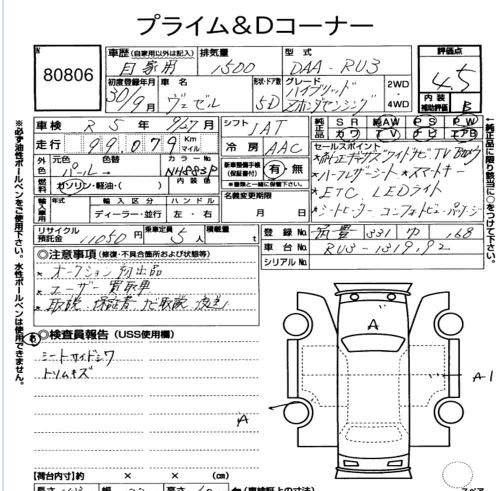 プライム&Dコーナー
N
80806
車歴 (自家用以外は記入)
自家用
排気量
1500
型式
DAA-RU3
評価点
4.5
初度登録年月
30年
9月
車名
ヴェゼル
形状・ドア数
5D
グレード
ハイブリッド
ホンダセンシング
2WD
・
4WD
内装
補助評価
B
車検 R5年 9/27月
シフト
IAT
純正品
SR 純AW PS PW
カワ TV ナビ エアB
走行
99,079
Km
マイル
冷房
AAC
セールスポイント
外色
元色 色替
パール→
カラーNo
NH883P
新車整備手帳
(保証書付)
有・無
※整備手帳と一緒に保管して下さい。
*ハーフレザーシート *スマートキー
燃料
ガソリン・軽油・( )
名義変更期限
月 日
*ETC LEDライト
輸入車用
年式
輸入区分
ディーラー・並行
ハンドル
左・右
*シートヒーター コンフォートビューパッケージ
リサイクル
預託金
11050円
乗車定員
5人
積載量
t
登録No 筑豊 331 ゆ 168
車台No RU3-1319,92
シリアルNo
◎注意事項 (修復・不具合箇所および状態等)
*オークション初出品
*ユーザー買取車
*取説 保証書 ナビ取説 後送
◎検査員報告 (USS使用欄)
シートサイドシワ
トリムキズ
A
A
A1
【荷台内寸】約 × × (cm)
※必ず油性ボールペンをご使用下さい。水性ボールペンは使用できません。
↑純正品に限り該当に○をつけて下さい。
スペア